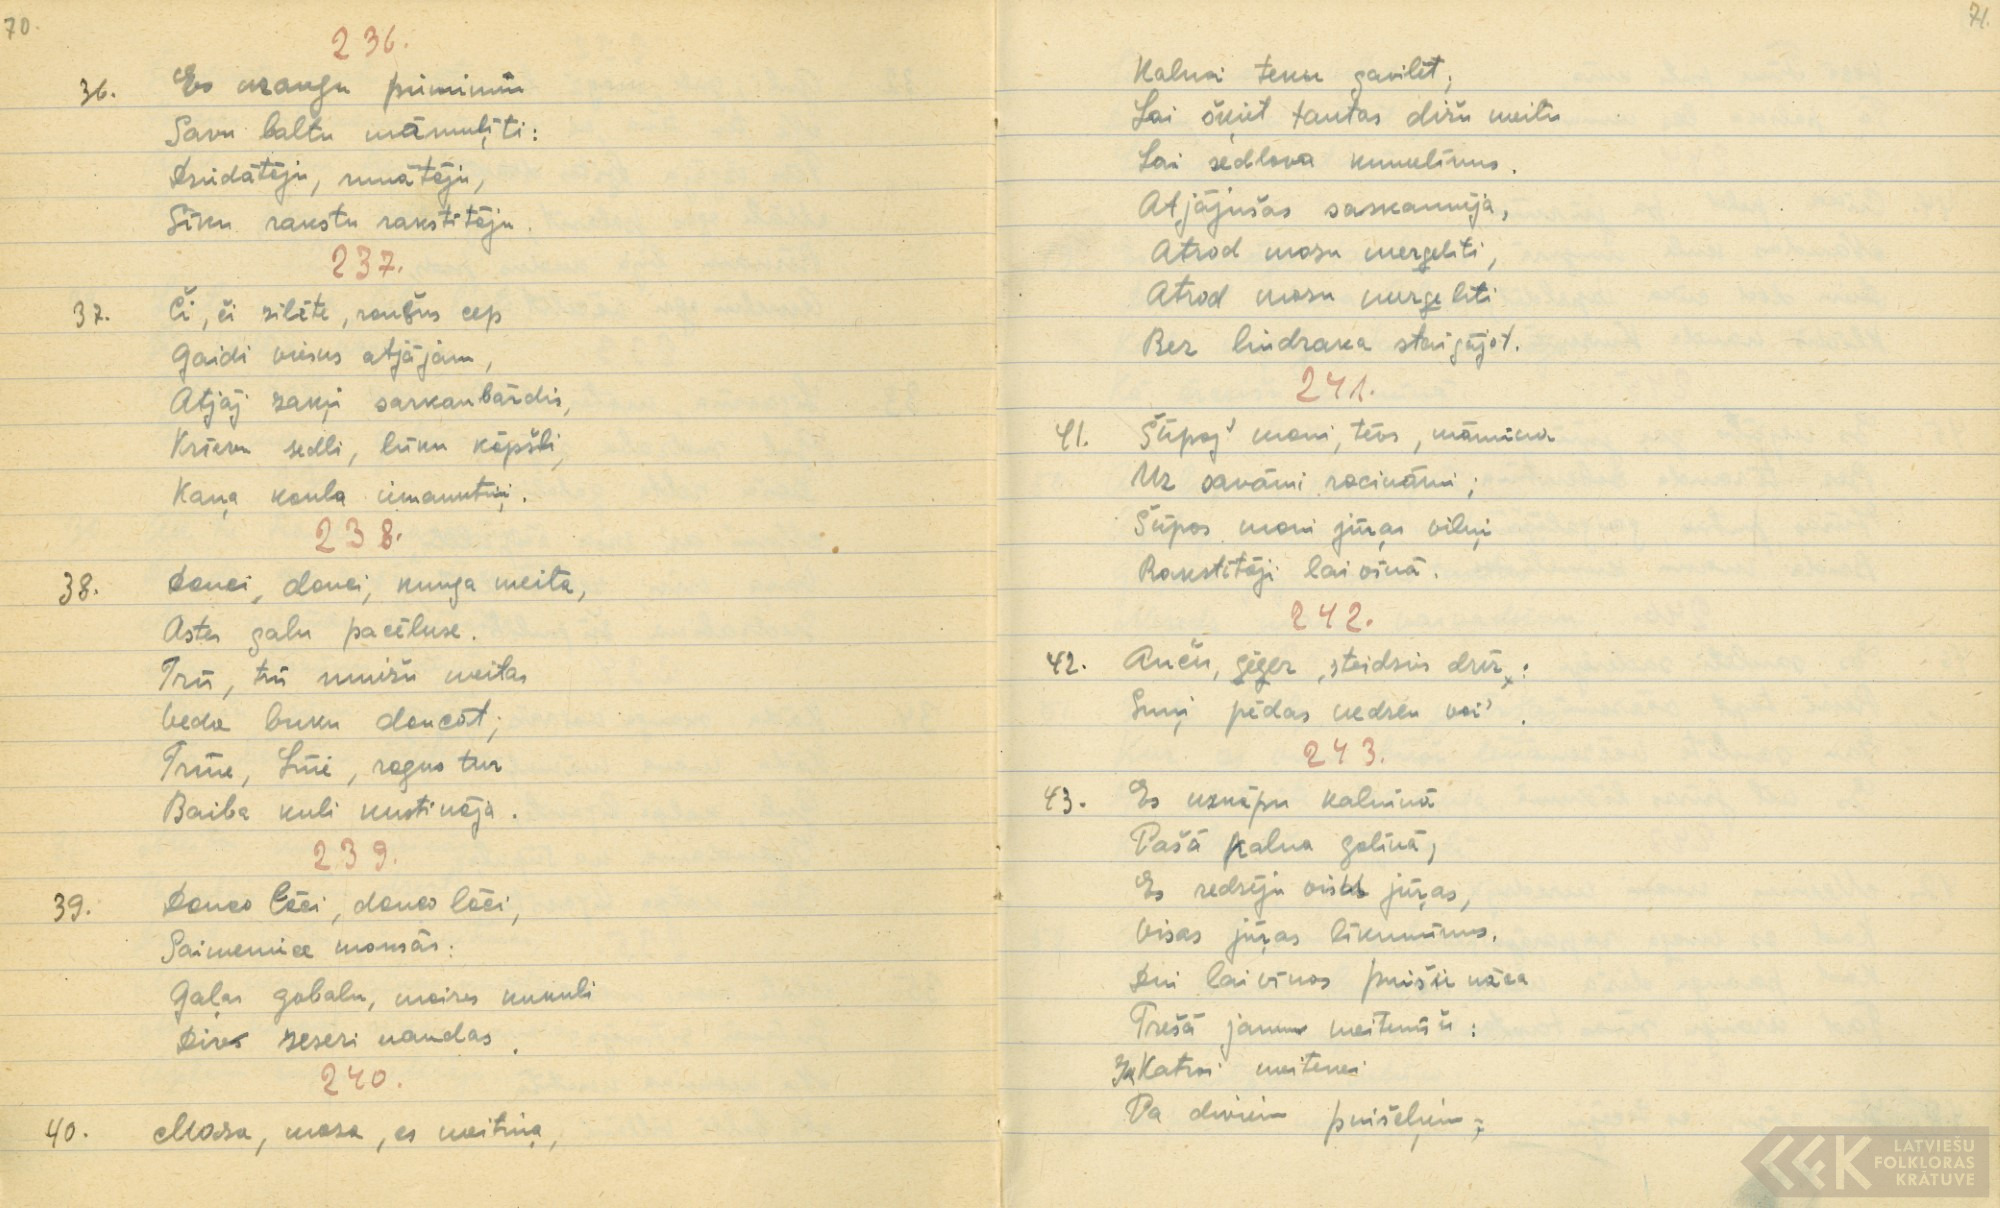 70.
236.
36. Es mangu piminim
Savu baltu māmuļiti:
Dziidātēju, runātēju,
Sīku rakstu rakstitēju.
237.
37. Či, či zilēte, raušus cep
Gaidi viesus atjājam,
Atjāj zaķi sarkanbārdis,
Krievu sedli, lūku kāpšli,
Kaņa kaula iemauktiņi.
238.
38. Danci, danci, kunga meita,
Astes galu pacēluse.
Trū, trū muižu meitas
veda buku dancāt;
Trīne, Līne, ragus tur
Baiba kuli kustināja.
239.
39. Danco lāci, danco lāci,
Saimeniece maksās:
Gaļas gabalu, maizes kukuli
Divi zeseri naudas.
240.
40. Maza, maza, es meitiņa,
71.
Kalnai teku gavilēt;
Lai šķiet tautas dižu meitu
Lai sedlova kumelinus.
Atjājušas saskanuēja,
Atrod mazu mergeliti,
Atrod mazu mergeliti
Bez lindraka staigājot.
241.
41. Šūpoj' mani, tēvs, māmina
Uz savāmi rocināmi;
Šūpos mani jūŗas vilņi
Rakstītāji laivinā.
242.
42. Anču, ģēģer, steidzies drīz:
Suņi pēdas nedzen vai'.
243.
43. Es uzkāpu kalninā
Pašā kalna galinā,
Es redzēju visas jūŗas,
Visas jūŗas līkuminus.
Dui laivinas puiši nāca
Trešā jaunas meitenīši:
Ik Katrai meitenei
Pa diviem puišeļiem;
LATVIEŠU
FOLKLORAS
KRĀTUVE